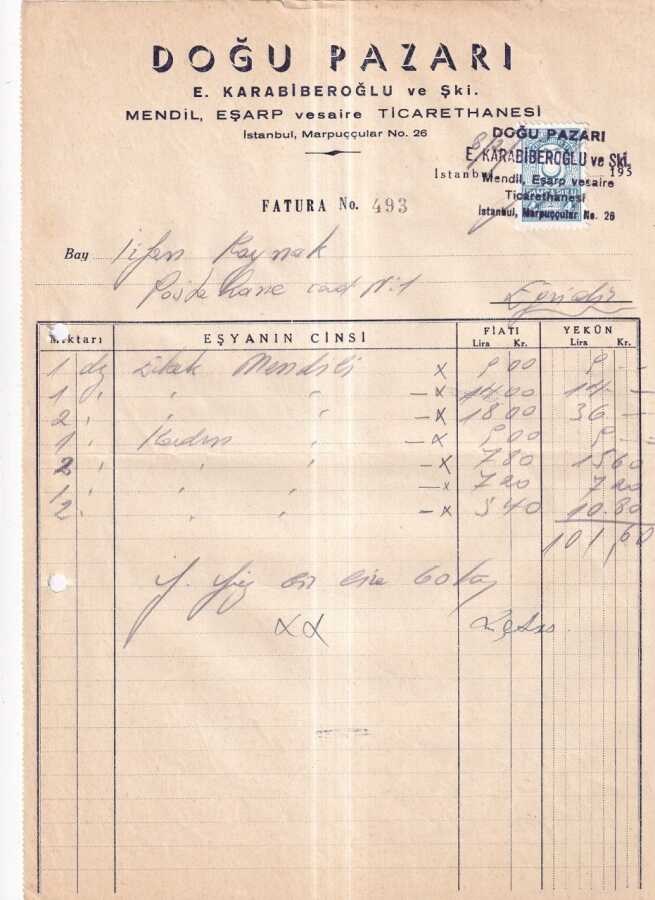 DOĞU PAZARI
E. KARABİBEROĞLU ve Şki.
MENDİL, EŞARP vesaire TİCARETHANESİ
İstanbul, Marpuççular No. 26
DOĞU PAZARI
E. KARABİBEROĞLU ve Şki.
Mendil, Eşarp vesaire
Ticarethanesi
İstanbul, Marpuççular No. 26
İstanbul 195
FATURA No. 493
Bay İrfan Kaynak
Postahane cad N. 1 Eğridir
Miktarı EŞYANIN CİNSİ FİATI YEKÛN
Lira Kr. Lira Kr.
1 dz Erkek Mendili x 9 00 9 - -
1 " " " - x 14 00 14 -
2 " " " - x 18 00 36 -
1 " Kadın " - x 9 00 9 - -
2 " " " - x 7 80 15 60
1 " " " - x 7 20 7 20
2 " " " - x 5 40 10 80
101,60
Y. Yüz bir lira 60 kş